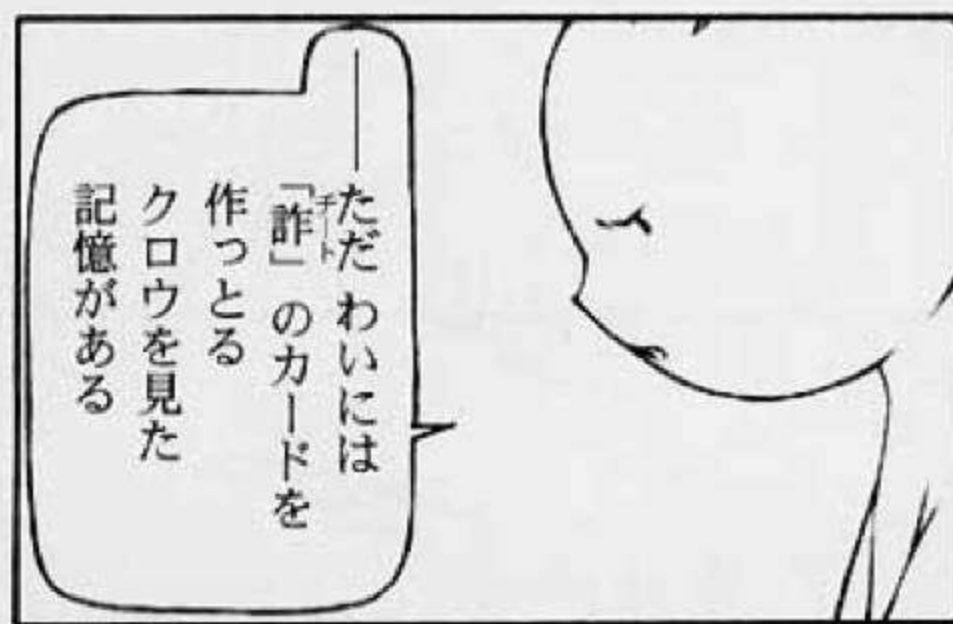 ――ただ わいには
「詐」のカードを
チート
作っとる
クロウを見た
記憶がある